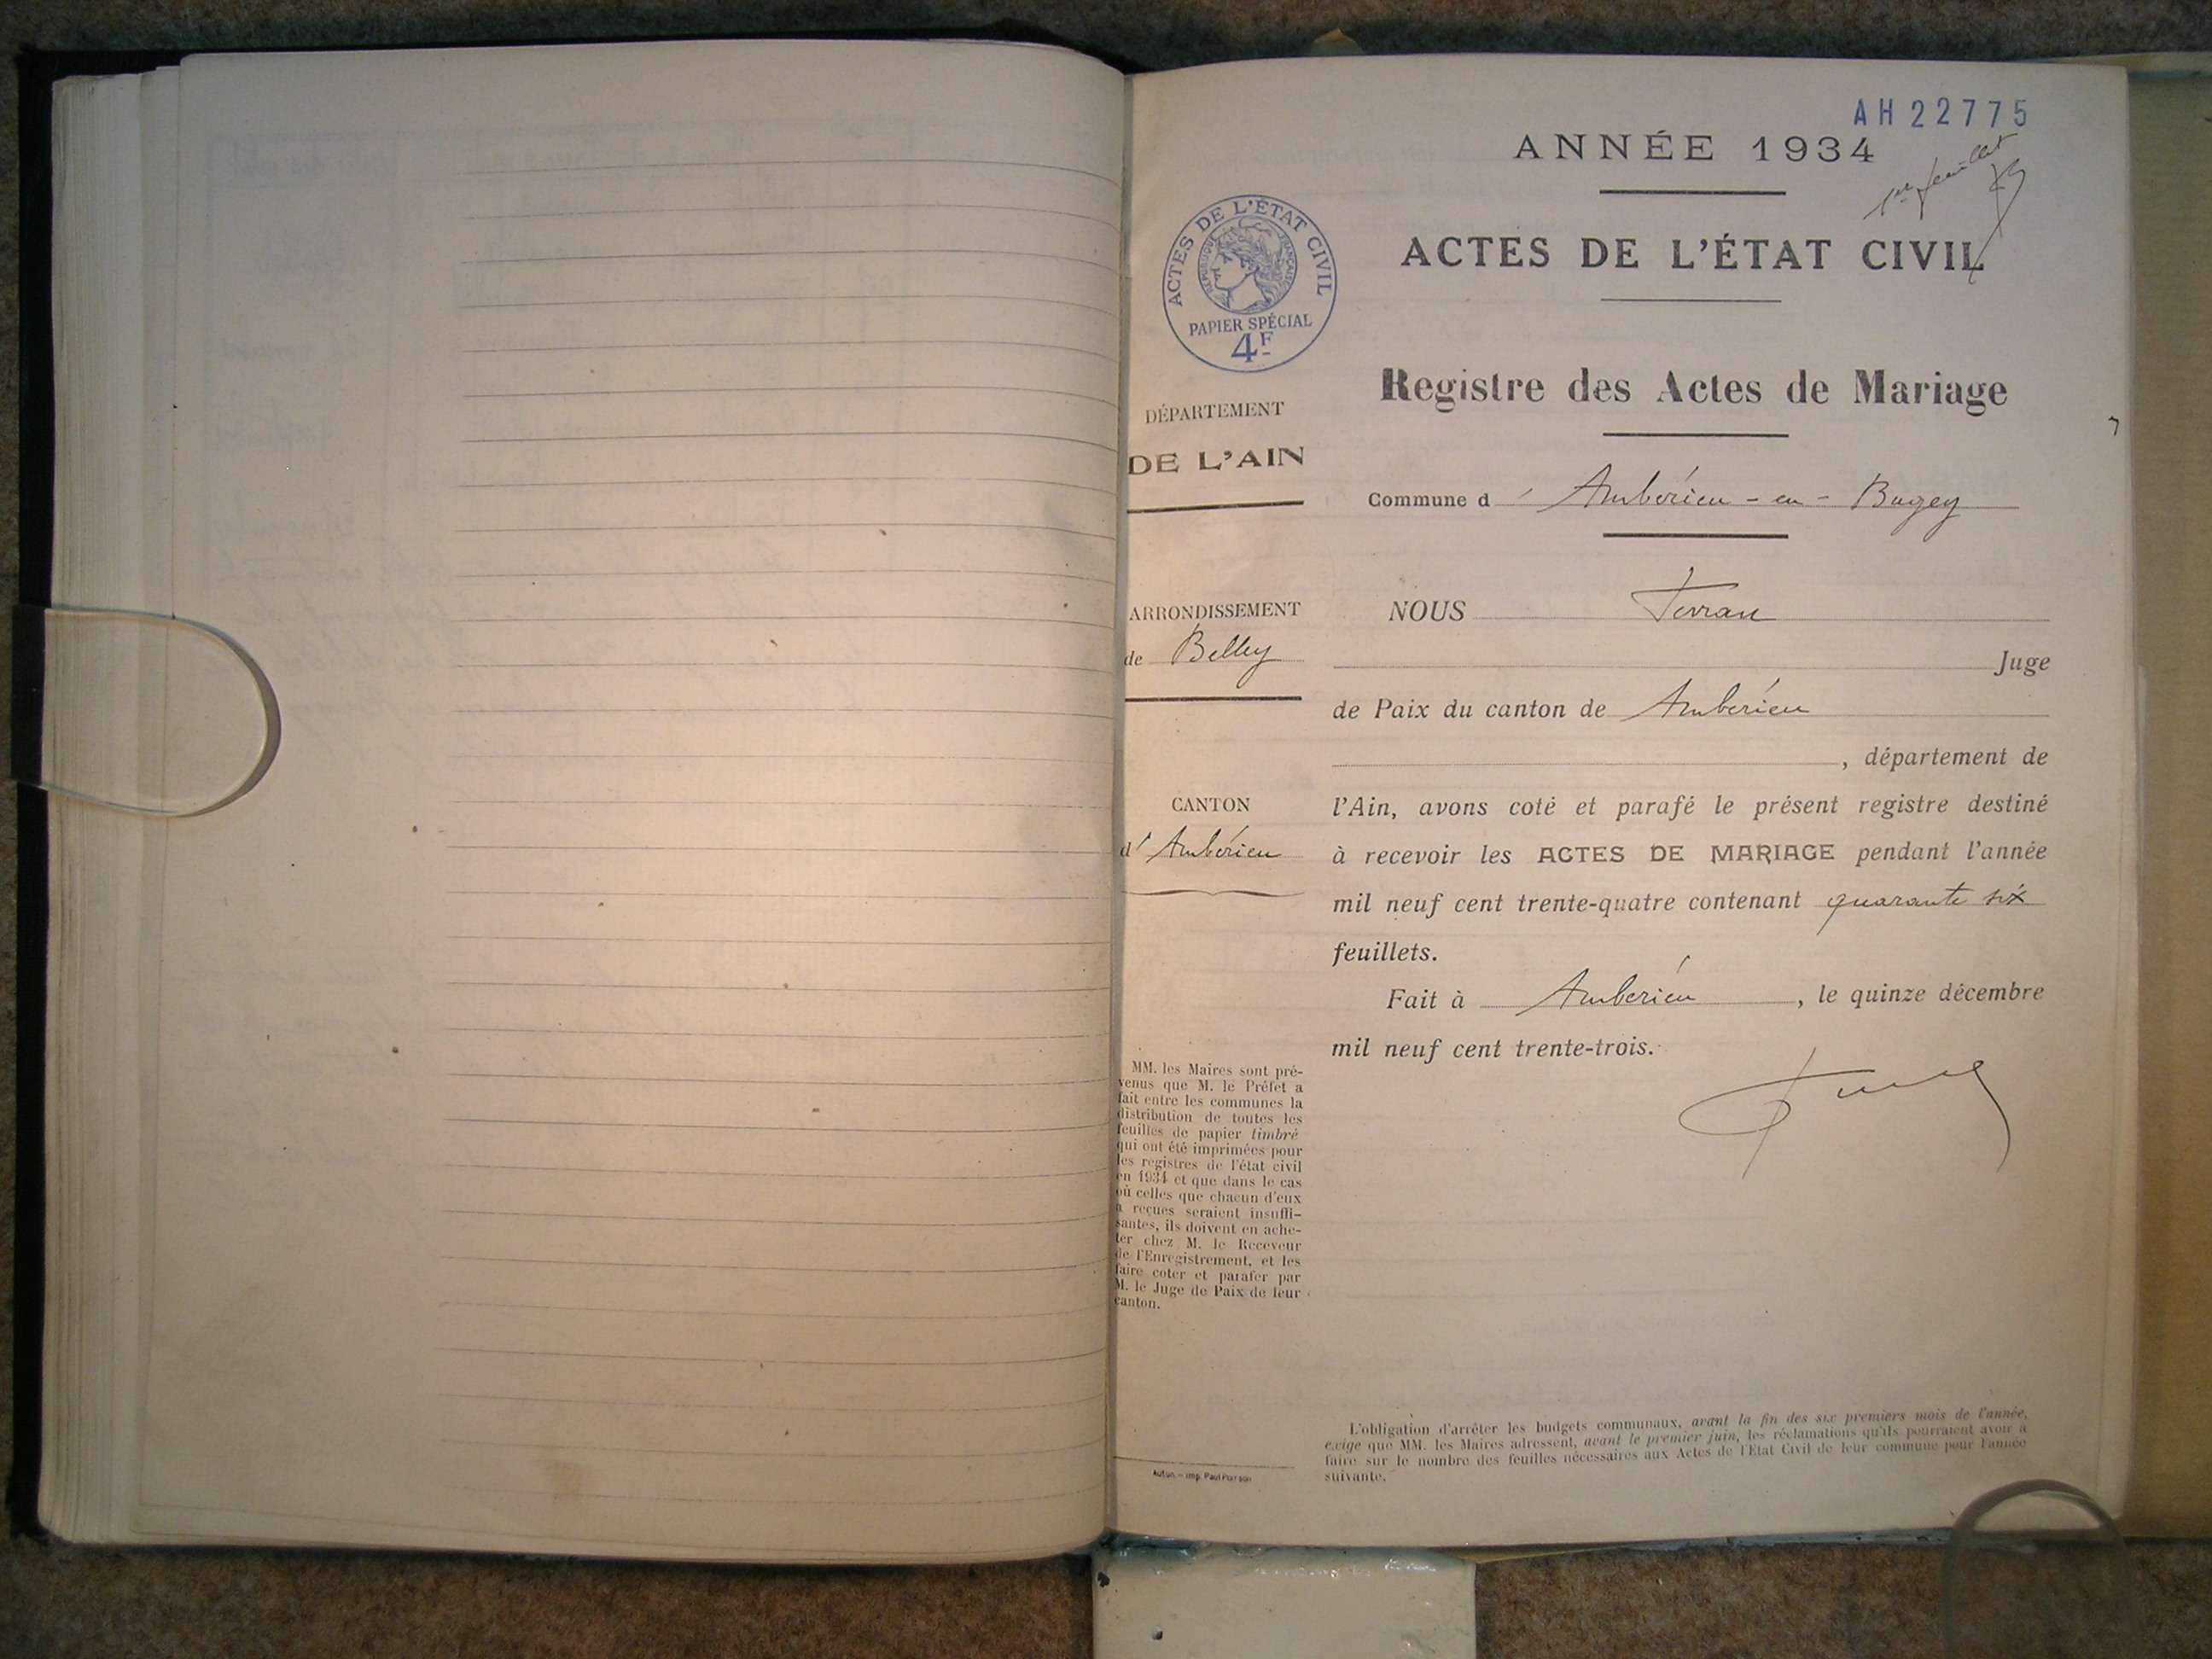 AH 22775
ANNÉE 1934
1er feuillet
ACTES DE L'ÉTAT CIVIL
ACTES DE L'ÉTAT CIVIL
RÉPUBLIQUE FRANÇAISE
PAPIER SPÉCIAL
4F
Registre des Actes de Mariage
DÉPARTEMENT
DE L'AIN
Commune d' Ambérieu-en-Bugey
ARRONDISSEMENT
de Belley
CANTON
d' Ambérieu
NOUS
Juge
de Paix du canton de Ambérieu
, département de
l'Ain, avons coté et parafé le présent registre destiné
à recevoir les ACTES DE MARIAGE pendant l'année
mil neuf cent trente-quatre contenant quarante six
feuillets.
Fait à Ambérieu, le quinze décembre
mil neuf cent trente-trois.
MM. les Maires sont pré-
venus que M. le Préfet a
fait entre les communes la
distribution de toutes les
feuilles de papier timbré
qui ont été imprimées pour
les registres de l'état civil
en 1934 et que dans le cas
où celles que chacun d'eux
a reçues seraient insuffi-
santes, ils doivent en ache-
ter chez M. le Receveur
de l'Enregistrement, et les
faire coter et parafer par
M. le Juge de Paix de leur
canton.
Autun. – Imp. Paul
L'obligation d'arrêter les budgets communaux, avant la fin des six premiers mois de l'année,
exige que MM. les Maires adressent, avant le premier juin, les réclamations qu'ils pourraient avoir à
faire sur le nombre des feuilles nécessaires aux Actes de l'Etat Civil de leur commune pour l'année
suivante.